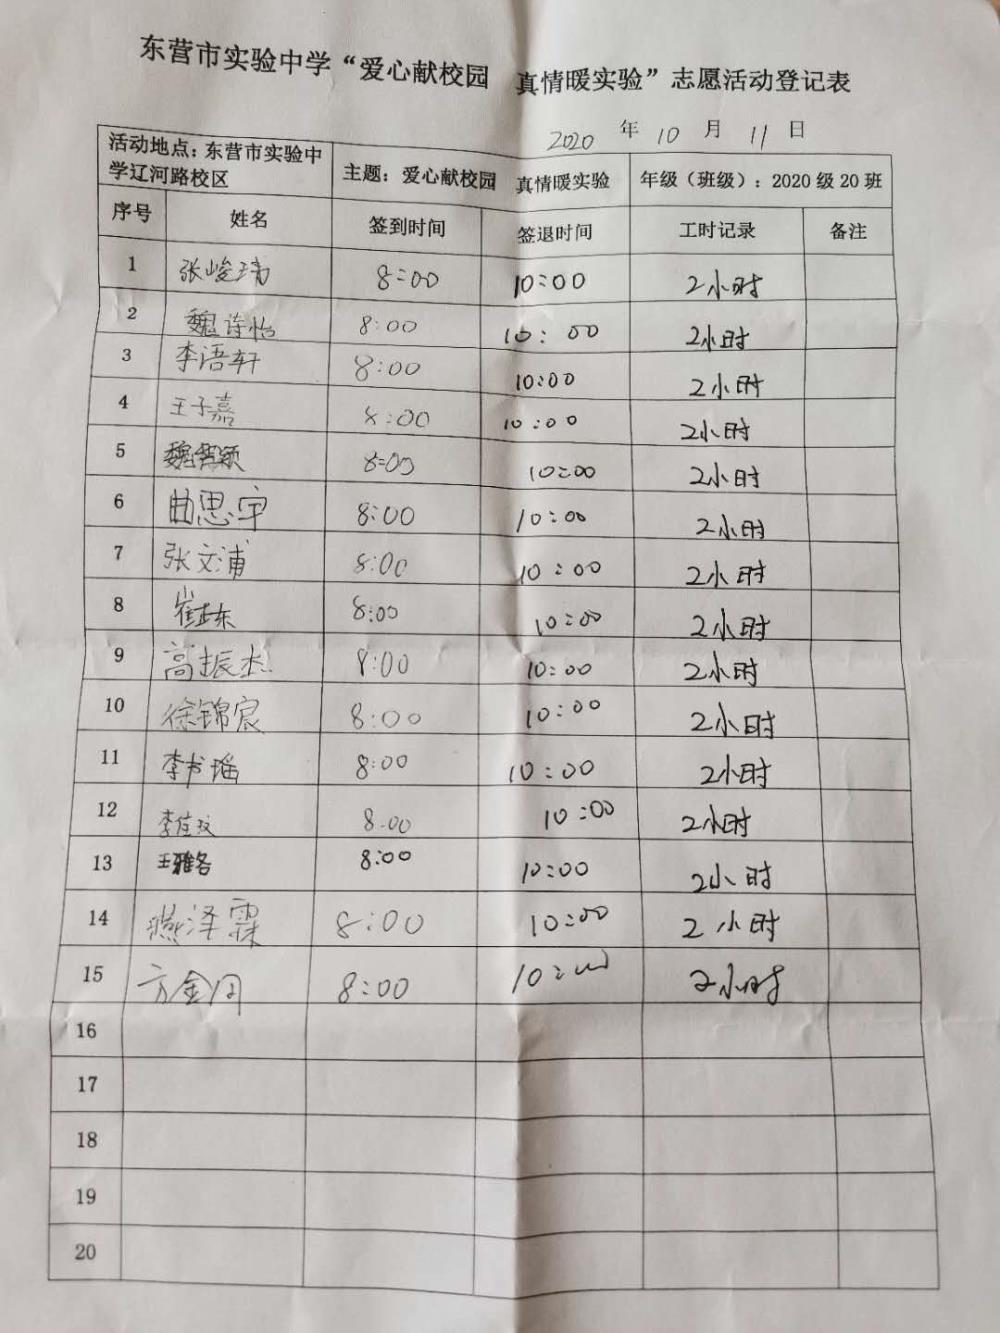 东营市实验中学“爱心献校园 真情暖实验”志愿活动登记表
2020 年 10 月 11 日
活动地点：东营市实验中学辽河路校区 主题：爱心献校园 真情暖实验 年级（班级）：2020 级 20 班
序号 姓名 签到时间 签退时间 工时记录 备注
1 张峻玮 8:00 10:00 2小时
2 魏诗怡 8:00 10:00 2小时
3 李浯轩 8:00 10:00 2小时
4 王子嘉 8:00 10:00 2小时
5 魏 颖 8:00 10:00 2小时
6 曲思宇 8:00 10:00 2小时
7 张文浦 8:00 10:00 2小时
8 崔 东 8:00 10:00 2小时
9 高振杰 8:00 10:00 2小时
10 徐锦宸 8:00 10:00 2小时
11 李书瑶 8:00 10:00 2小时
12 李佳玟 8.00 10:00 2小时
13 王雅名 8:00 10:00 2小时
14 燕泽霖 8:00 10:00 2小时
15 方金同 8:00 10:00 2小时
16
17
18
19
20